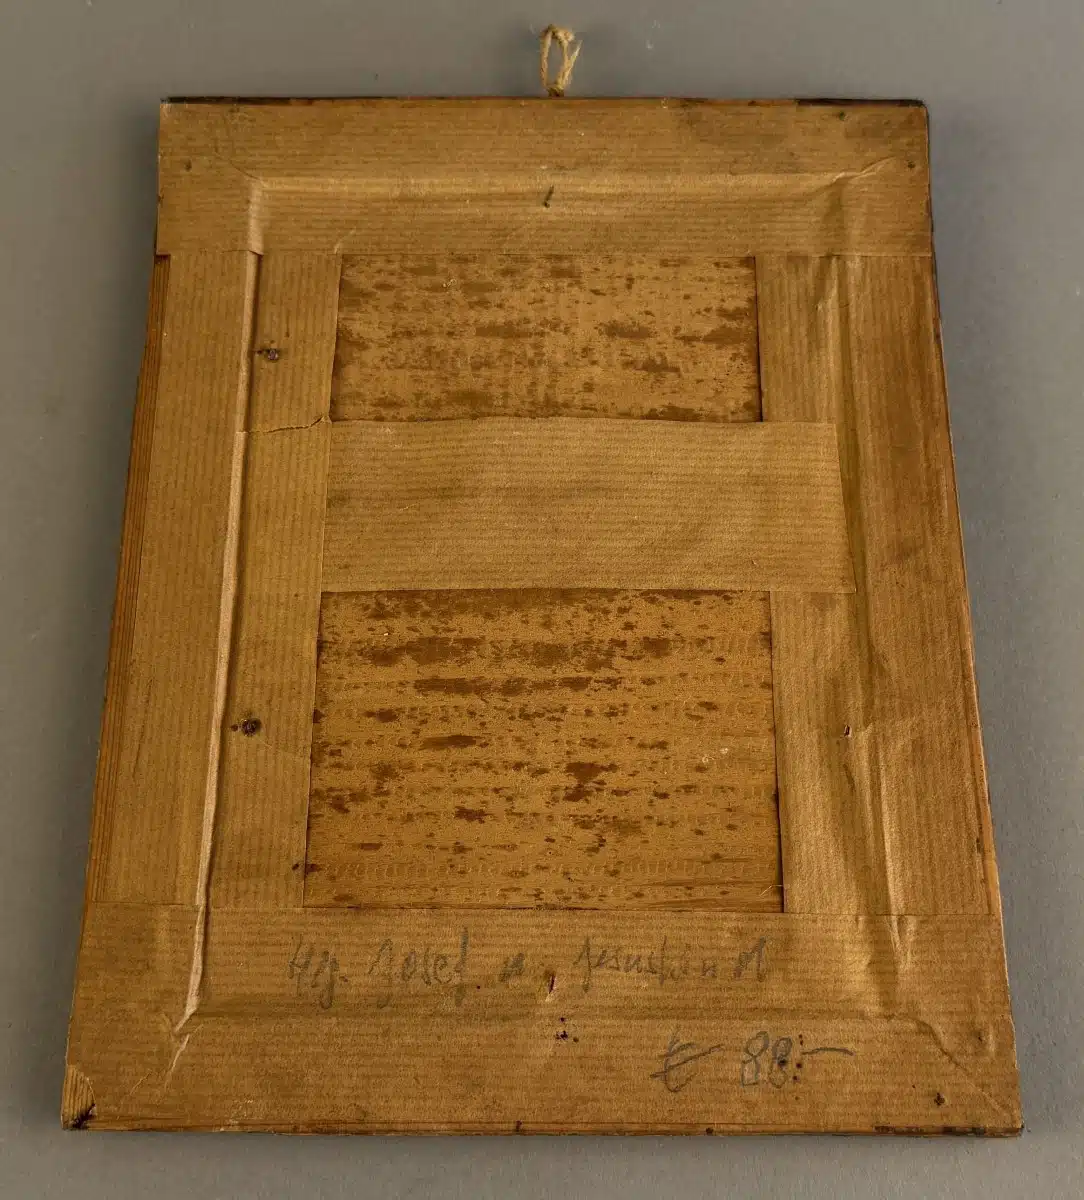 Hlg. Josef u. Jesuskind
€ 88.-